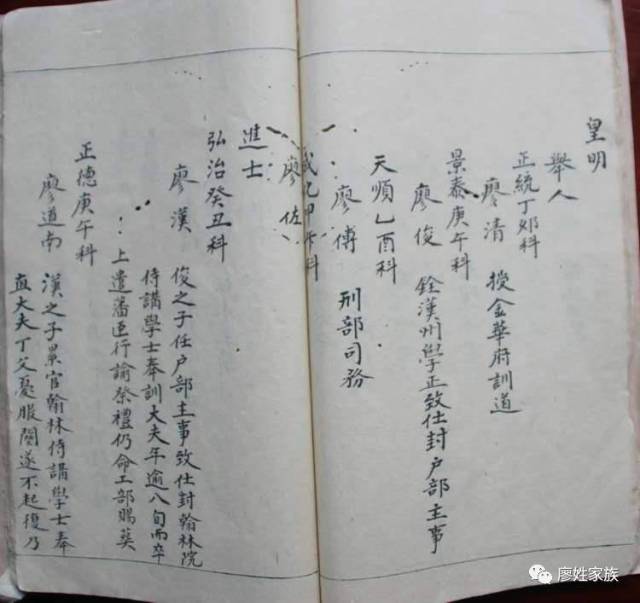 皇明
舉人
正統丁卯科
廖清 授金華府訓道
景泰庚午科
廖俊 銓漢州學正致仕封戶部主事
天順乙酉科
廖傅 刑部司務
成化甲午科
廖佐
進士
弘治癸丑科
廖漢 俊之子任戶部主事致仕封翰林院
侍講學士奉訓大夫年逾八旬而卒
上遣藩臣行諭祭禮仍命工部賜葬
正德庚午科
廖道南 漢之子累官翰林侍講學士奉
直大夫丁父憂服闋遂不起復乃
廖姓家族